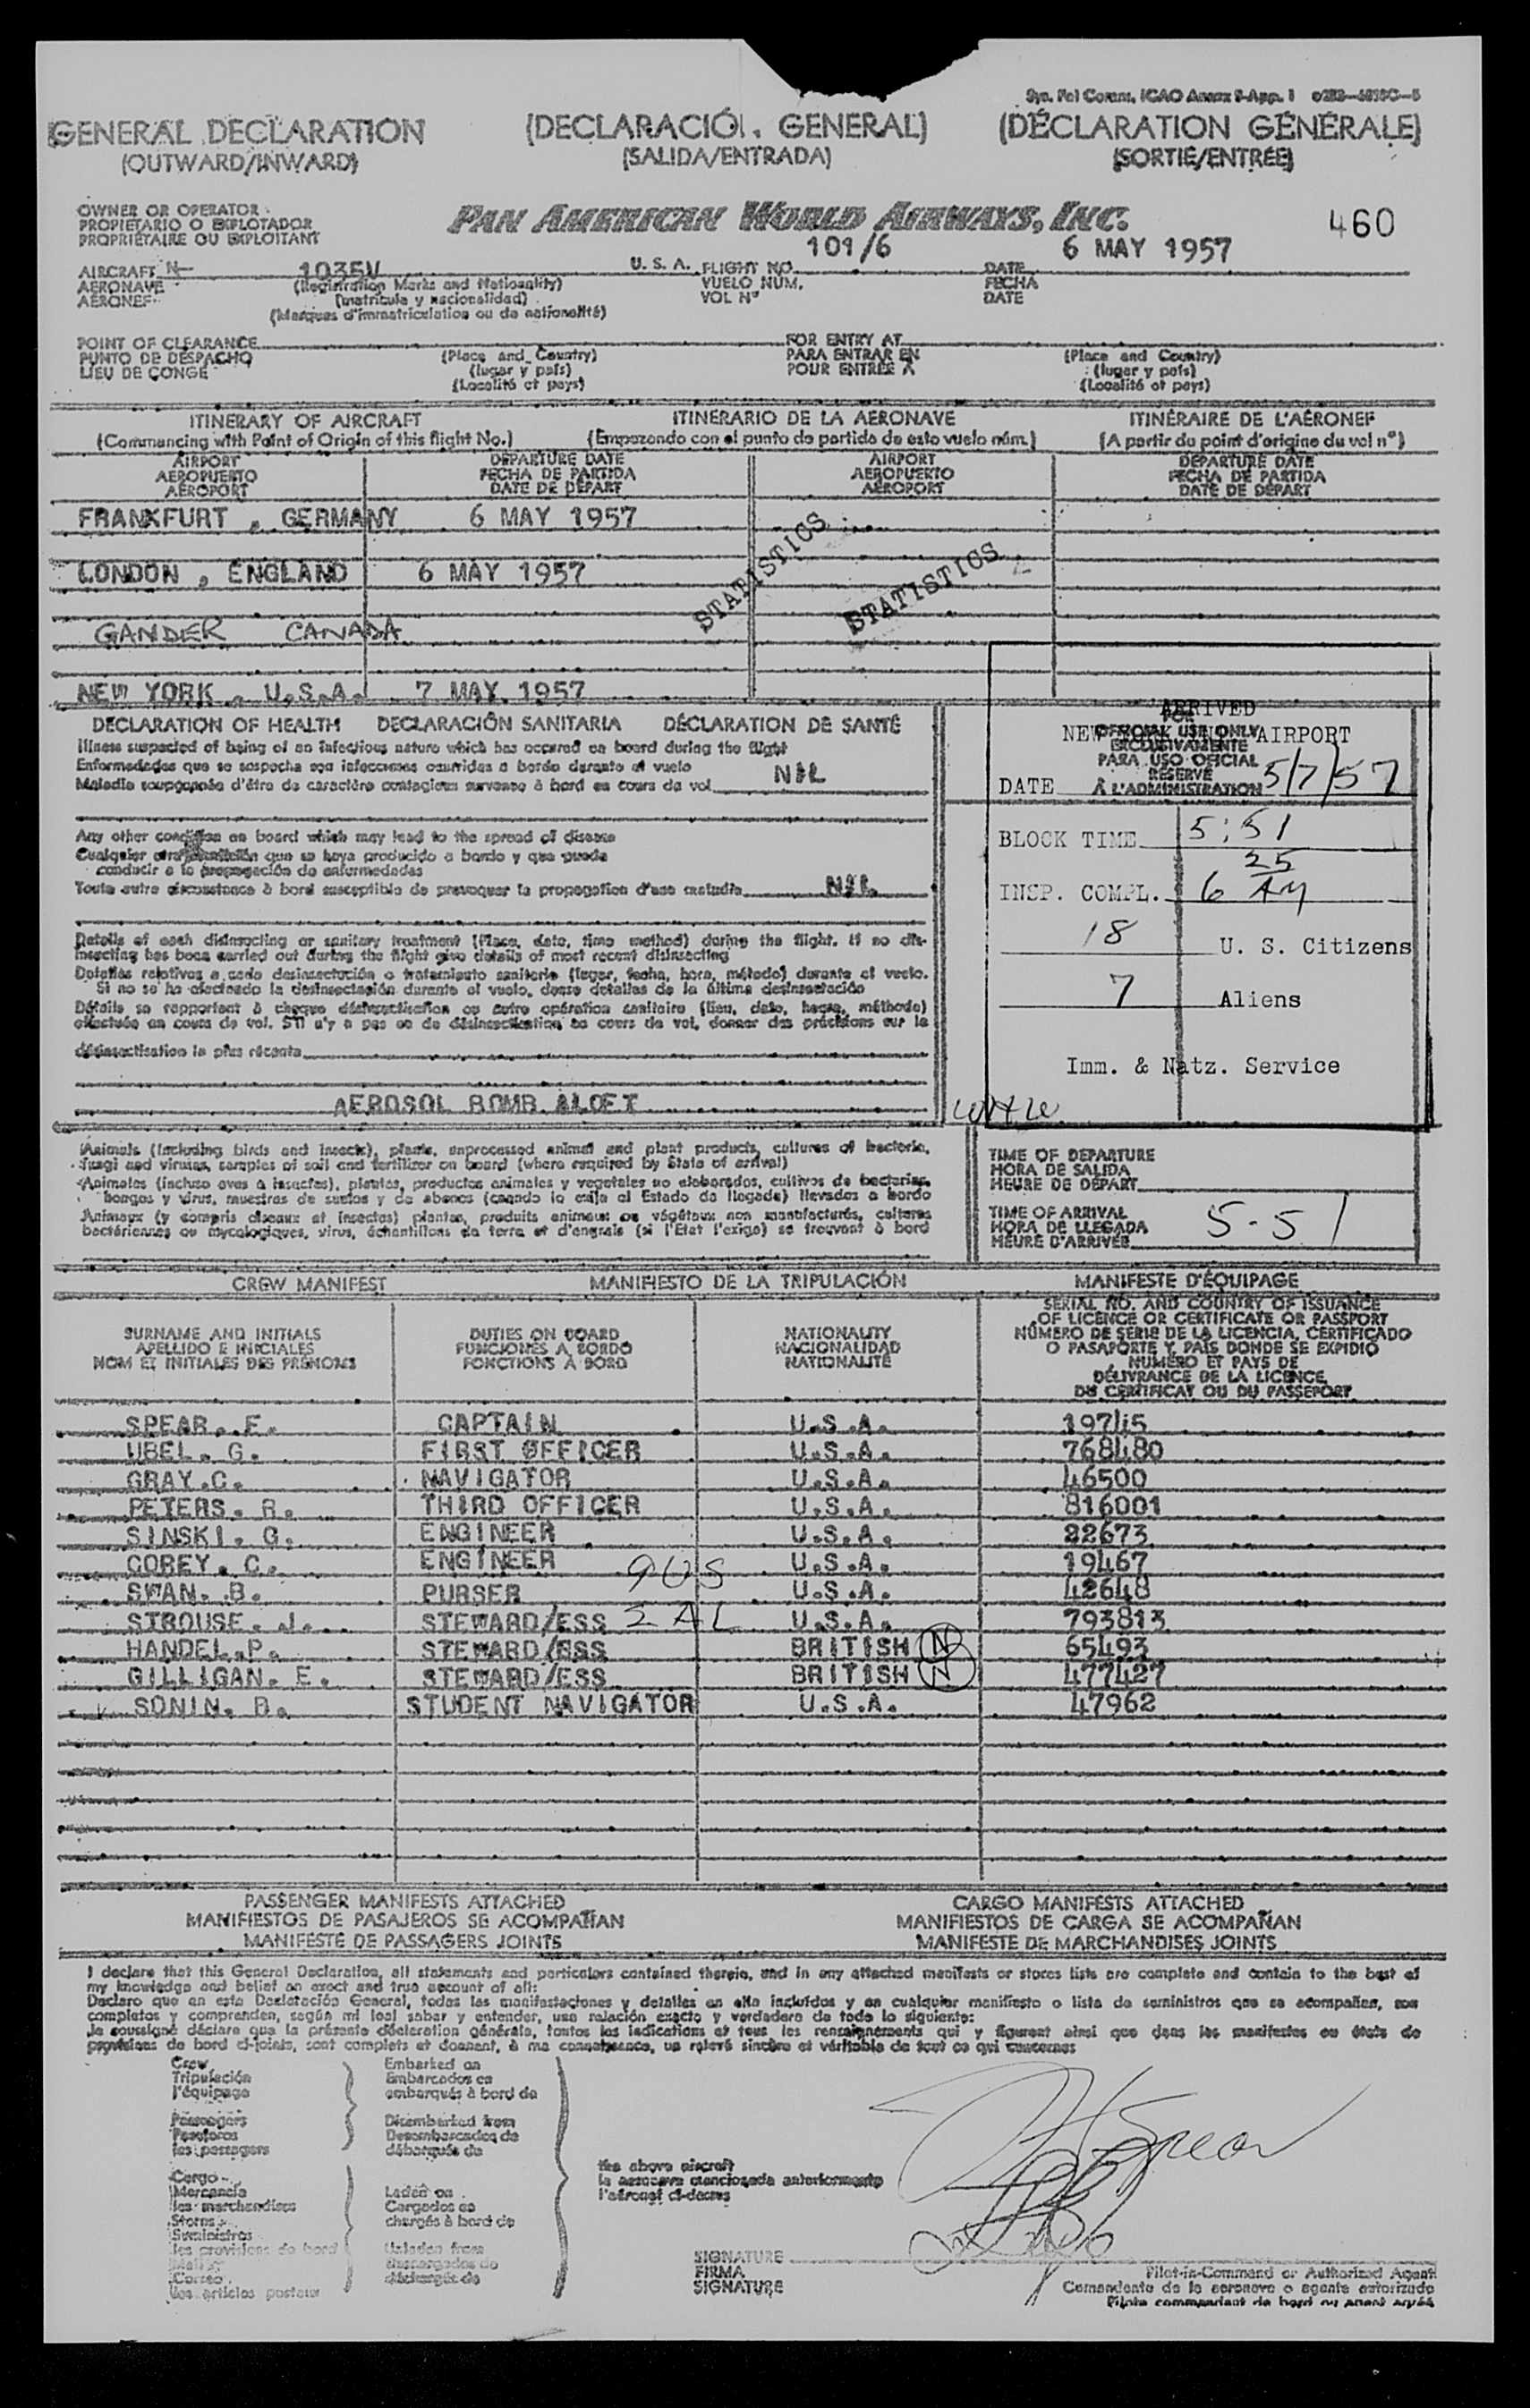 Syn. Pol Comm. ICAO Annex 9-App. 1
GENERAL DECLARATION (DECLARACIÓN GENERAL) (DÉCLARATION GÉNÉRALE)
(OUTWARD/INWARD) (SALIDA/ENTRADA) (SORTIE/ENTRÉE)
OWNER OR OPERATOR
PROPIETARIO O EXPLOTADOR
PROPRIÉTAIRE OU EXPLOITANT
PAN AMERICAN WORLD AIRWAYS, INC. 460
AIRCRAFT N 1035V U. S. A. FLIGHT NO. 101/6 DATE 6 MAY 1957
AERONAVE (Registration Marks and Nationality) VUELO NÚM. FECHA
AÉRONEF (matrícula y nacionalidad) VOL Nº DATE
(Marques d'immatriculation ou de nationalité)
POINT OF CLEARANCE FOR ENTRY AT
PUNTO DE DESPACHO (Place and Country) PARA ENTRAR EN (Place and Country)
LIEU DE CONGÉ (lugar y país) POUR ENTRÉE À (lugar y país)
(Localité et pays) (Localité et pays)
ITINERARY OF AIRCRAFT ITINERARIO DE LA AERONAVE ITINÉRAIRE DE L'AÉRONEF
(Commencing with Point of Origin of this flight No.) (Empezando con el punto de partida de esto vuelo núm.) (A partir du point d'origine du vol nº)
AIRPORT DEPARTURE DATE AIRPORT DEPARTURE DATE
AEROPUERTO FECHA DE PARTIDA AEROPUERTO FECHA DE PARTIDA
AÉROPORT DATE DE DÉPART AÉROPORT DATE DE DÉPART
FRANKFURT , GERMANY 6 MAY 1957
LONDON , ENGLAND 6 MAY 1957
STATISTICS STATISTICS
GANDER CANADA
NEW YORK , U.S.A. 7 MAY 1957
DECLARATION OF HEALTH DECLARACIÓN SANITARIA DÉCLARATION DE SANTÉ
Illness suspected of being of an infectious nature which has occured on board during the flight
Enfermedades que se sospecha son infecciosas ocurridas a bordo durante el vuelo
Maladie soupçonnée d'être de caractère contagieux survenue à bord en cours de vol NIL
Any other condition on board which may lead to the spread of disease
Cualquier otra condición que se haya producido a bordo y que puede
conducir a la propagación de enfermedades
Toute autre circonstance à bord susceptible de provoquer la propagation d'une maladie NIL
Details of each disinsecting or sanitary treatment (Place, date, time method) during the flight. If no disinsecting has been carried out during the flight give details of most recent disinsecting
Detalles relativos a cada desinsectación o tratamiento sanitario (lugar, fecha, hora, método) durante el vuelo.
Si no se ha efectuado la desinsectación durante el vuelo, dense detalles de la última desinsectación
Détails se rapportant à chaque désinsectisation ou autre opération sanitaire (lieu, date, heure, méthode)
effectuée en cours de vol. S'il n'y a pas eu de désinsectisation en cours de vol, donner des précisions sur la
désinsectisation la plus récente
AEROSOL BOMB ALOFT
ARRIVED
FOR
NEW AIRPORT
OFFICIAL USE ONLY
EXCLUSIVAMENTE
PARA USO OFICIAL
RÉSERVÉ
À L'ADMINISTRATION
DATE 5/7/57
BLOCK TIME 5:51
INSP. COMPL. 6 25 AM
18 U. S. Citizens
7 Aliens
Imm. & Natz. Service
Animals (including birds and insects), plants, unprocessed animal and plant products, cultures of bacteria,
fungi and viruses, samples of soil and fertilizer on board (where required by State of arrival)
Animales (incluso aves e insectos), plantas, productos animales y vegetales no elaborados, cultivos de bacterias,
hongos y virus, muestras de suelos y de abonos (cuando lo exija el Estado de llegada) llevados a bordo
Animaux (y compris oiseaux et insectes) plantes, produits animaux ou végétaux non manufacturés, cultures
bactériennes ou mycologiques, virus, échantillons de terre et d'engrais (si l'Etat l'exige) se trouvant à bord
TIME OF DEPARTURE
HORA DE SALIDA
HEURE DE DÉPART
TIME OF ARRIVAL
HORA DE LLEGADA
HEURE D'ARRIVÉE 5-51
CREW MANIFEST MANIFIESTO DE LA TRIPULACIÓN MANIFESTE D'ÉQUIPAGE
SURNAME AND INITIALS
APELLIDO E INICIALES
NOM ET INITIALES DES PRÉNOMS
DUTIES ON BOARD
FUNCIONES A BORDO
FONCTIONS À BORD
NATIONALITY
NACIONALIDAD
NATIONALITÉ
SERIAL NO. AND COUNTRY OF ISSUANCE
OF LICENCE OR CERTIFICATE OR PASSPORT
NÚMERO DE SERIE DE LA LICENCIA, CERTIFICADO
O PASAPORTE Y PAÍS DONDE SE EXPIDIÓ
NUMÉRO ET PAYS DE
DÉLIVRANCE DE LA LICENCE,
DU CERTIFICAT OU DU PASSEPORT
SPEAR. F. CAPTAIN U.S.A. 19745
UBEL. G. FIRST OFFICER U.S.A. 768480
GRAY.C. NAVIGATOR U.S.A. 46500
PETERS. R. THIRD OFFICER U.S.A. 816001
SINSKI. G. ENGINEER U.S.A. 22673
COREY. C. ENGINEER U.S.A. 19467
9 US
SWAN. B. PURSER U.S.A. 42648
STROUSE. J. STEWARD/ESS 2 AL U.S.A. 793813
HANDEL.P. STEWARD/ESS BRITISH N 65493
GILLIGAN. E. STEWARD/ESS BRITISH N 477427
SONIN. B. STUDENT NAVIGATOR U.S.A. 47962
PASSENGER MANIFESTS ATTACHED CARGO MANIFESTS ATTACHED
MANIFIESTOS DE PASAJEROS SE ACOMPAÑAN MANIFIESTOS DE CARGA SE ACOMPAÑAN
MANIFESTE DE PASSAGERS JOINTS MANIFESTE DE MARCHANDISES JOINTS
I declare that this General Declaration, all statements and particulars contained therein, and in any attached manifests or stores lists are complete and contain to the best of
my knowledge and belief an exact and true account of all:
Declaro que en esta Declaración General, todas las manifestaciones y detalles en ella incluídos y en cualquier manifiesto o lista de suministros que se acompañan, son
completos y comprenden, según mi leal saber y entender, una relación exacta y verdadera de todo lo siguiente:
Je soussigné déclare que la présente déclaration générale, toutes les indications et tous les renseignements qui y figurent ainsi que dans les manifestes ou états de
provisions de bord ci-joints, sont complets et donnent, à ma connaissance, un relevé sincère et véritable de tout ce qui concerne:
Crew
Tripulación
l'équipage
Passengers
Pasajeros
les passagers
Embarked on
Embarcados en
embarqués à bord de
Disembarked from
Desembarcados de
débarqués de
Cargo
Mercancía
les marchandises
Stores
Suministros
les provisions de bord
Mail
Correo
les articles postaux
Laden on
Cargados en
chargés à bord de
Unladen from
Descargados de
déchargés de
the above aircraft
la aeronave mencionada anteriormente
l'aéronef ci-dessus
SIGNATURE
FIRMA
SIGNATURE
Pilot-in-Command or Authorized Agent
Comandante de la aeronave o agente autorizado
Pilote commandant de bord ou agent agréé